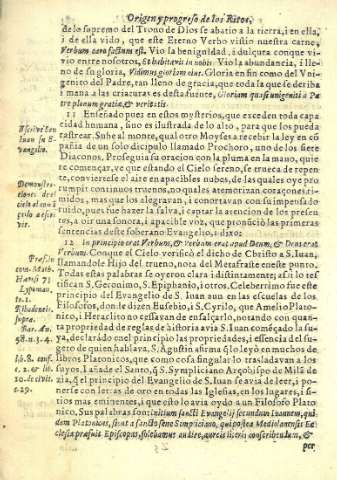 Origen y progreso de los Ritos,
de lo supremo del Trono de Dios se abatio a la tierra, i en ella,
i de ella vido, que este Eterno Verbo vistio nuestra carne,
Verbum caro factum est. Vio la benignidad, i dulçura con que vi-
vio entre nosotros, Et habitavit in nobis. Vio la abundancia, i lle-
no de su gloria, Vidimus gloriam eius. Gloria en fin como del Vni-
genito del Padre, tan lleno de gracia, que toda la que se deriba
a mana a las criaturas es desta fuente, Gloriam quasi unigeniti a Pa-
tre plenum gratiæ, & veritatis.
11 Enseñado pues en estos mysterios, que exceden toda capa
cidad humana, sino es ilustrada de lo alto, para que los pueda
rastrear. Sube al monte, qual otro Moyses a recebir la ley en cō
pañia de un solo dicipulo llamado Prochoro, uno de los siete
Diaconos. Proseguia su oracion con la pluma en la mano, quie
re començar, ve que estando el Cielo sereno, se trueca de repen
te, convierte se el aire en apacibles nubes, de las quales oye pro
rumpir continuos truenos, no quales atemorizan coraçones ti-
midos, mas que los alegravan, i conortavan con su impensado
ruido, pues fue hazer la salva, i captar la atencion de los presen
tes, a oir una sonora, i apacible voz, que pronūciò las primeras
sentencias deste soberano Evangelio, i dixo:
12 In principio erat Verbum, & Verbum erat apud Deum, & Deus erat
Verbum. Conque el Cielo verificò el dicho de Christo a S. Iuan,
llamandole Hijo del trueno, nota del Metafraste en este punto.
Todas estas palabras se oyeron clara i distintamente; assi lo tes
tifican S. Geronimo, S. Epiphanio, i otros. Celeberrimo fue este
principio del Evangelio de S. Iuan aun en las escuelas de los
Filosofos, donde dizen Eusebio, i S. Cyrilo, que Amelio Plato-
nico, i Heraclito no cessavan de ensalçarlo, notando con quan-
ta propriedad de reglas de historia avia S. Iuan començado la su-
ya, declarādo en el principio las propriedades, i essencia del su-
geto de quien hablava. S. Agustin afirma q̃ lo leyò en muchos de
libros Platonicos, que como cosa singular lo trasladavan a los
suyos. I añade el Santo, q̃ S. Sympliciano Arçobispo de Milā de
zia, q̃ el principio del Evangelio de S. Iuan se avia de leer, i po-
nerle con letras de oro en todas las Iglesias, en los lugares, i si-
tios mas eminentes, i que esto le avia oydo a un Filosofo Plato
nico, Sus palabras son: Initium sancti Evangelij secundum Ioannem, qui-
dam Platonicus, sicut a sancto sene Simpliciano, qui postea Mediolanensi Ec
clesiæ præsuit Episcopus, solebamus audire, aureis literis conscribendum, &
per
Escrive San
Iuan su E-
vangelio.
Demonstra-
ciones del
cielo al con
gelio a escri-
vir.